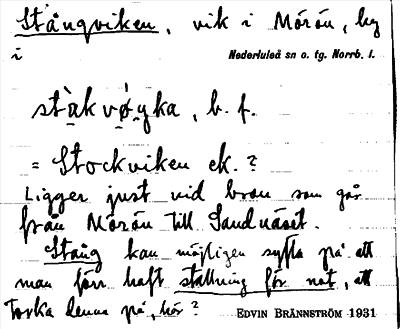 Stångviken, vik i Mörön, by
i Nederluleå sn o. tg. Norrb. l.
stàkvø̀yka, b. f.
= Stockviken ek. ?
Ligger just vid bron som går
från Mörön till Sandnäset.
Stång kan möjligen syfta på att
man förr haft ställning för not, att
Torka denna på, hör ?
EDVIN BRÄNNSTRÖM 1931